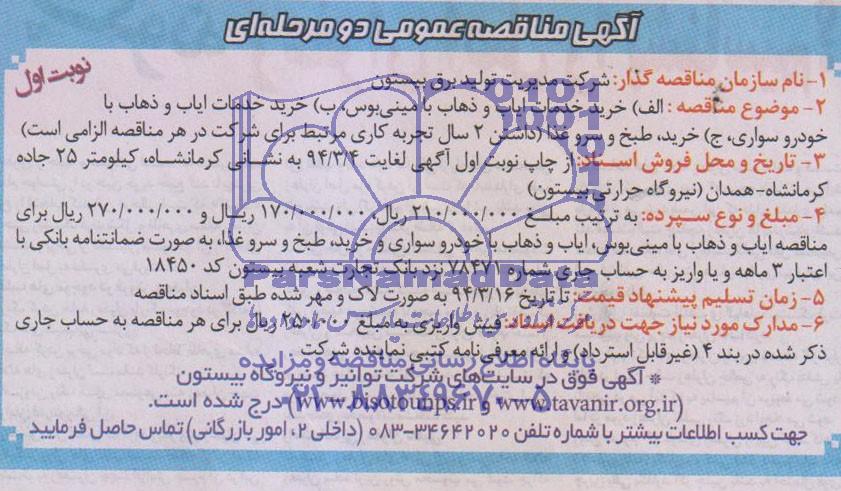 آگهی مناقصه عمومی دو مرحله‌ای
نوبت اول
۱- نام سازمان مناقصه گذار: شرکت مدیریت تولید برق بیستون
۲- موضوع مناقصه : الف) خرید خدمات ایاب و ذهاب با مینی‌بوس، ب) خرید خدمات ایاب و ذهاب با
خودرو سواری، ج) خرید، طبخ و سرو غذا (داشتن ۲ سال تجربه کاری مرتبط برای شرکت در هر مناقصه الزامی است)
۳- تاریخ و محل فروش اسناد: از چاپ نوبت اول آگهی لغایت ۹۴/۳/۴ به نشانی کرمانشاه، کیلومتر ۲۵ جاده
کرمانشاه- همدان (نیروگاه حرارتی بیستون)
۴- مبلغ و نوع سپرده: به ترکیب مبلغ ۲۱۰/۰۰۰/۰۰۰ ریال، ۱۷۰/۰۰۰/۰۰۰ ریال و ۲۷۰/۰۰۰/۰۰۰ ریال برای
مناقصه ایاب و ذهاب با مینی‌بوس، ایاب و ذهاب با خودرو سواری و خرید، طبخ و سرو غذا، به صورت ضمانتنامه بانکی با
اعتبار ۳ ماهه و یا واریز به حساب جاری شماره ۷۸۴۷۱ نزد بانک تجارت شعبه بیستون کد ۱۸۴۵۰
ParsNamadData
۵- زمان تسلیم پیشنهاد قیمت: تا تاریخ ۹۴/۳/۱۶ به صورت لاک و مهر شده طبق اسناد مناقصه
۶- مدارک مورد نیاز جهت دریافت اسناد: فیش واریزی به مبلغ ۲۵۰/۰۰۰ ریال برای هر مناقصه به حساب جاری
ذکر شده در بند ۴ (غیرقابل استرداد) و ارائه معرفی نامه کتبی نماینده شرکت
پایگاه اطلاع رسانی مناقصه و مزایده
* آگهی فوق در سایت‌های شرکت توانیر و نیروگاه بیستون
۰۲۱-۸۸۳۴۹۶۷۰-۵
(www.tavanir.org.ir و www.bisotounps.ir) درج شده است.
جهت کسب اطلاعات بیشتر با شماره تلفن ۳۴۶۴۲۰۲۰-۰۸۳ (داخلی ۲، امور بازرگانی) تماس حاصل فرمایید